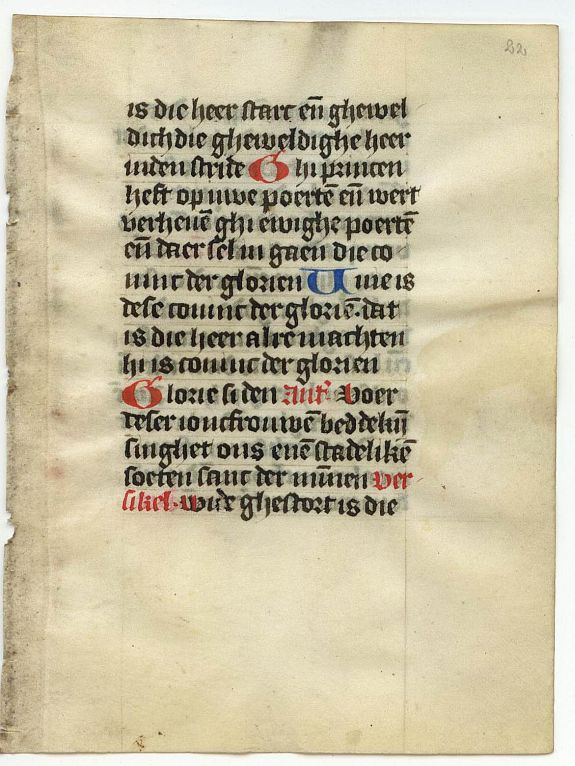 22
is die heer starc eñ ghewel
dich die gheweldighe heer
inden stride Ghi princen
heft op uwe poertē eñ wert
verheuē ghi ewighe poertē
eñ daer sel in gaen die co
ninc der glorien Wie is
dese coninc der gloriē. dat
is die heer alre machten
hi is coninc der glorien
Glorie si den Ant. Voer
deser ioncfrouwē beddekij
singhet ons enē stadelikē
soeten sanc der minnen ver-
sikel. wtde ghestort is die